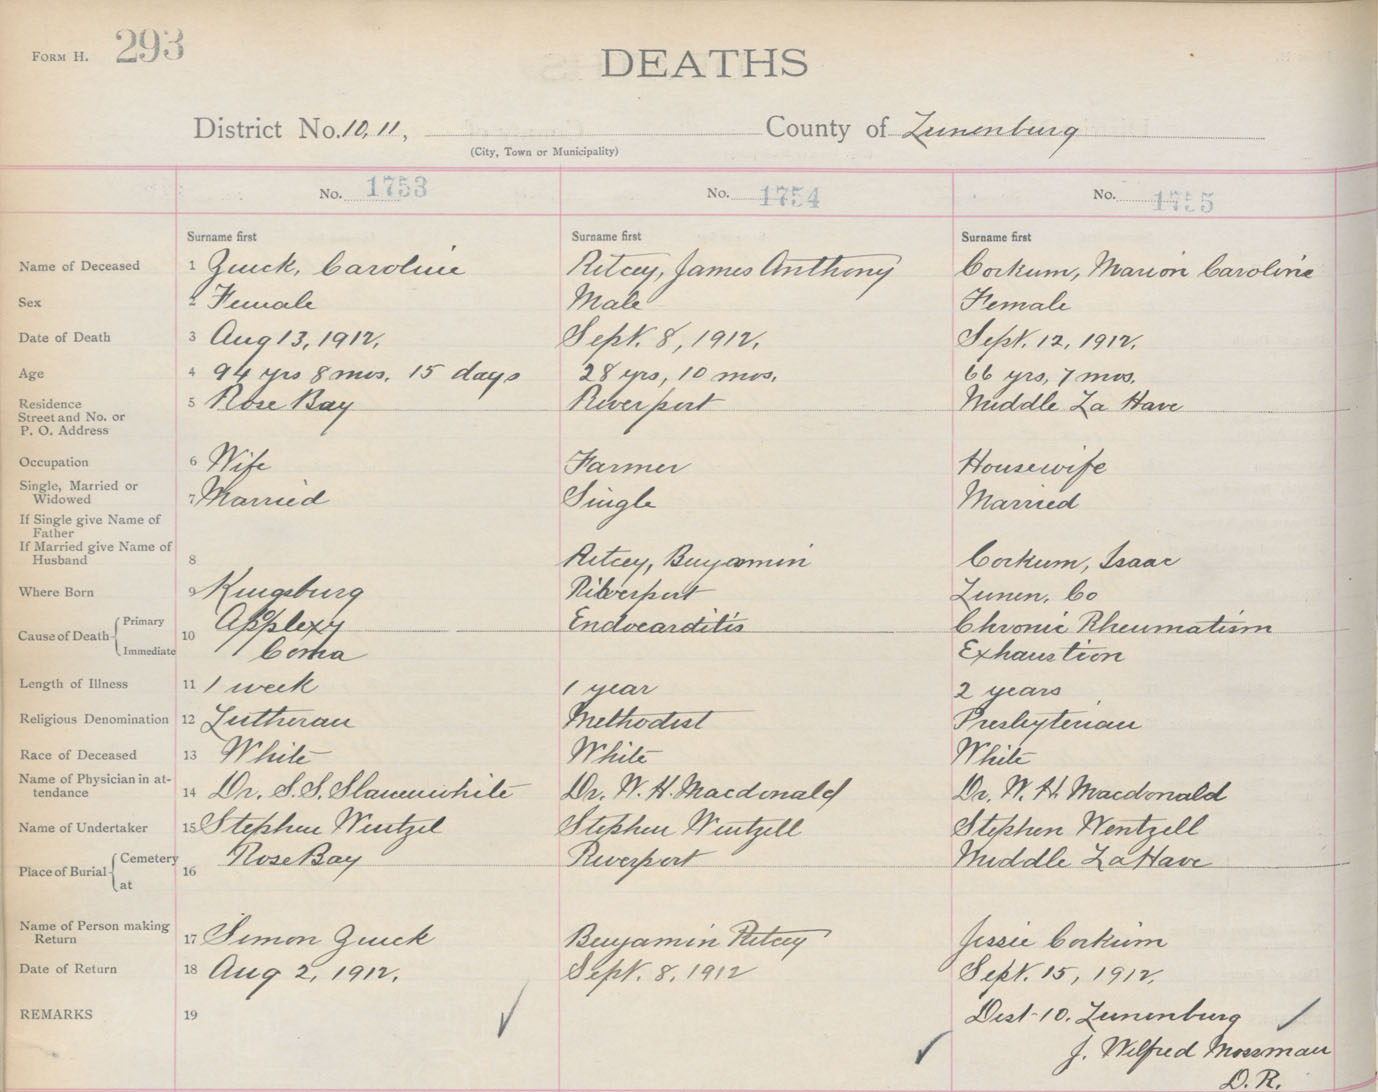 FORM H. 293
DEATHS
District No. 10, 11, County of Lunenburg
(City, Town or Municipality)
No. 1753 No. 1754 No. 1755
Surname first Surname first Surname first
Name of Deceased 1 Zinck, Caroline Ritcey, James Anthony Corkum, Marion Caroline
Sex 2 Female Male Female
Date of Death 3 Aug 13, 1912. Sept. 8, 1912. Sept. 12, 1912.
Age 4 94 yrs 8 mos. 15 days 28 yrs, 10 mos. 66 yrs, 7 mos.
Residence 5 Rose Bay Riverport Middle La Have
Street and No. or
P. O. Address
Occupation 6 Wife Farmer Housewife
Single, Married or
Widowed 7 Married Single Married
If Single give Name of
Father
If Married give Name of
Husband 8 Ritcey, Benjamin Corkum, Isaac
Where Born 9 Kingsburg Riverport Lunen. Co
Cause of Death Primary 10 Applexy Endocarditis Chronic Rheumatism
Immediate Coma Exhaustion
Length of Illness 11 1 week 1 year 2 years
Religious Denomination 12 Lutheran Methodist Presbyterian
Race of Deceased 13 White White White
Name of Physician in at-
tendance 14 Dr. S. S. Slauenwhite Dr. W. H. Macdonald Dr. W. H. Macdonald
Name of Undertaker 15 Stephen Wentzel Stephen Wentzell Stephen Wentzell
Place of Burial Cemetery 16 Rose Bay Riverport Middle La Have
at
Name of Person making
Return 17 Simon Zinck Benjamin Ritcey Jessie Corkum
Date of Return 18 Aug 2, 1912. Sept. 8, 1912 Sept. 15, 1912.
REMARKS 19 Dist-10. Lunenburg
J. Wilfred Mossman
D. R.